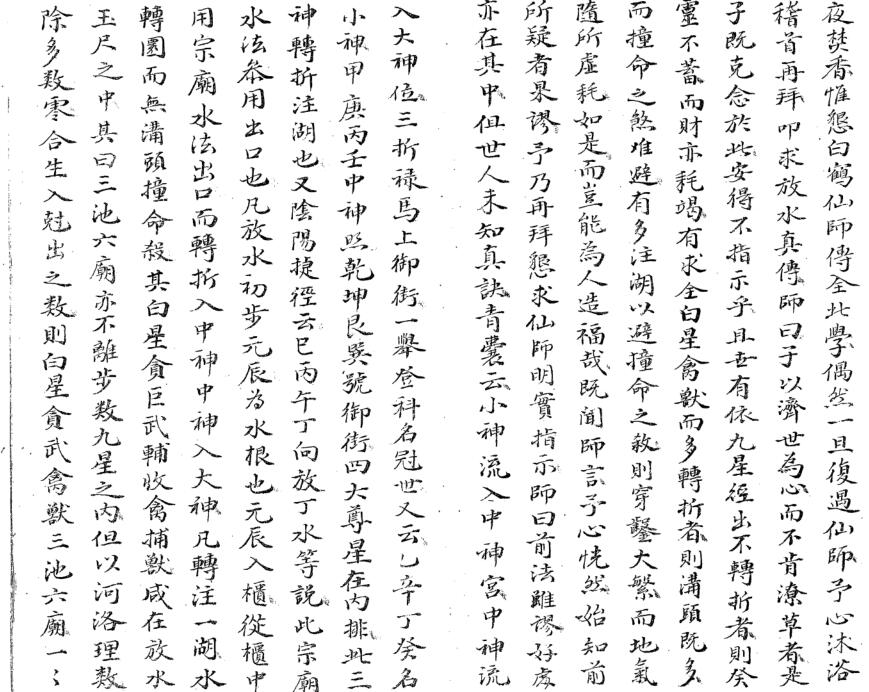 夜焚香惟懇白鶴仙師傳全此學偶然一旦復遇仙師予心沐浴
稽首再拜叩求放水真傳師曰子以濟世為心而不肯潦草者是
子既克念於此安得不指示乎且世有依九星徑出不轉折者則癸
靈不蓄而財亦耗竭有求全白星禽獸而多轉折者則溝頭既多
而撞命之煞难避有多注湖以避撞命之殺則穿鑿大繁而地氣
隨所虛耗如是而豈能為人造福哉既聞師言予心恍然始知前
所疑者果謬予乃再拜懇求仙師明實指示師曰前法雖謬好處
亦在其中但世人未知真訣青囊云小神流入中神宮中神流
入大神位三折祿馬上御街一舉登科名冠世又云乙辛丁癸名
小神甲庚丙壬中神照乾坤艮巽號御街四大尊星在內排此三
神轉折注湖也又陰陽捷徑云巳丙午丁向放丁水等說此宗廟
水法叅用出口也凡放水初步元辰為水根也元辰入櫃從櫃中
用宗廟水法出口而轉折入中神中神入大神凡轉注一湖水
轉圜而無溝頭撞命殺其白星貪巨武輔收禽捕獸咸在放水
玉尺之中其曰三池六廟亦不離步数九星之內但以河洛理数
除多数零合生入尅出之数則白星貪武禽獸三池六廟一〻